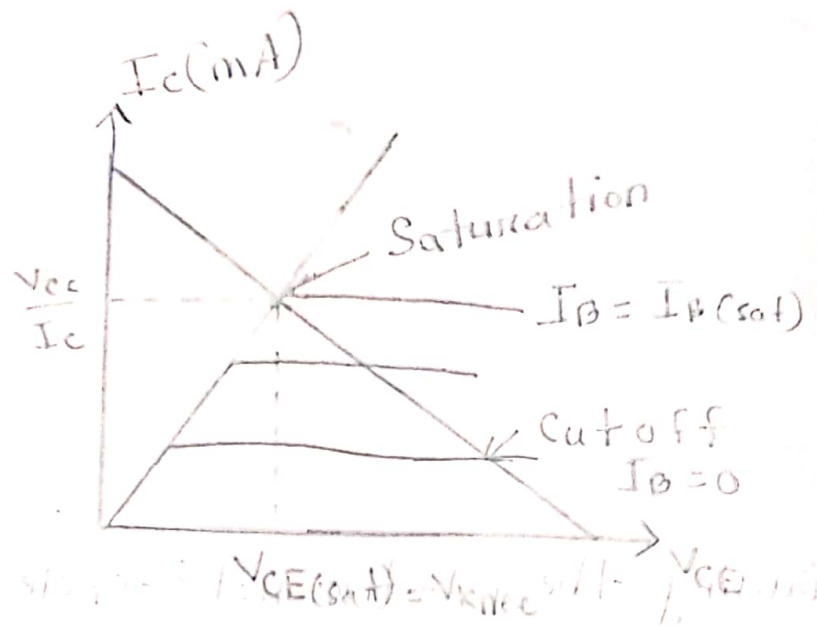 Ic(mA)
Saturation
Vcc
Ic
IB = IB(sat)
Cutoff
IB = 0
VCE(sat) = VKnee
VCE